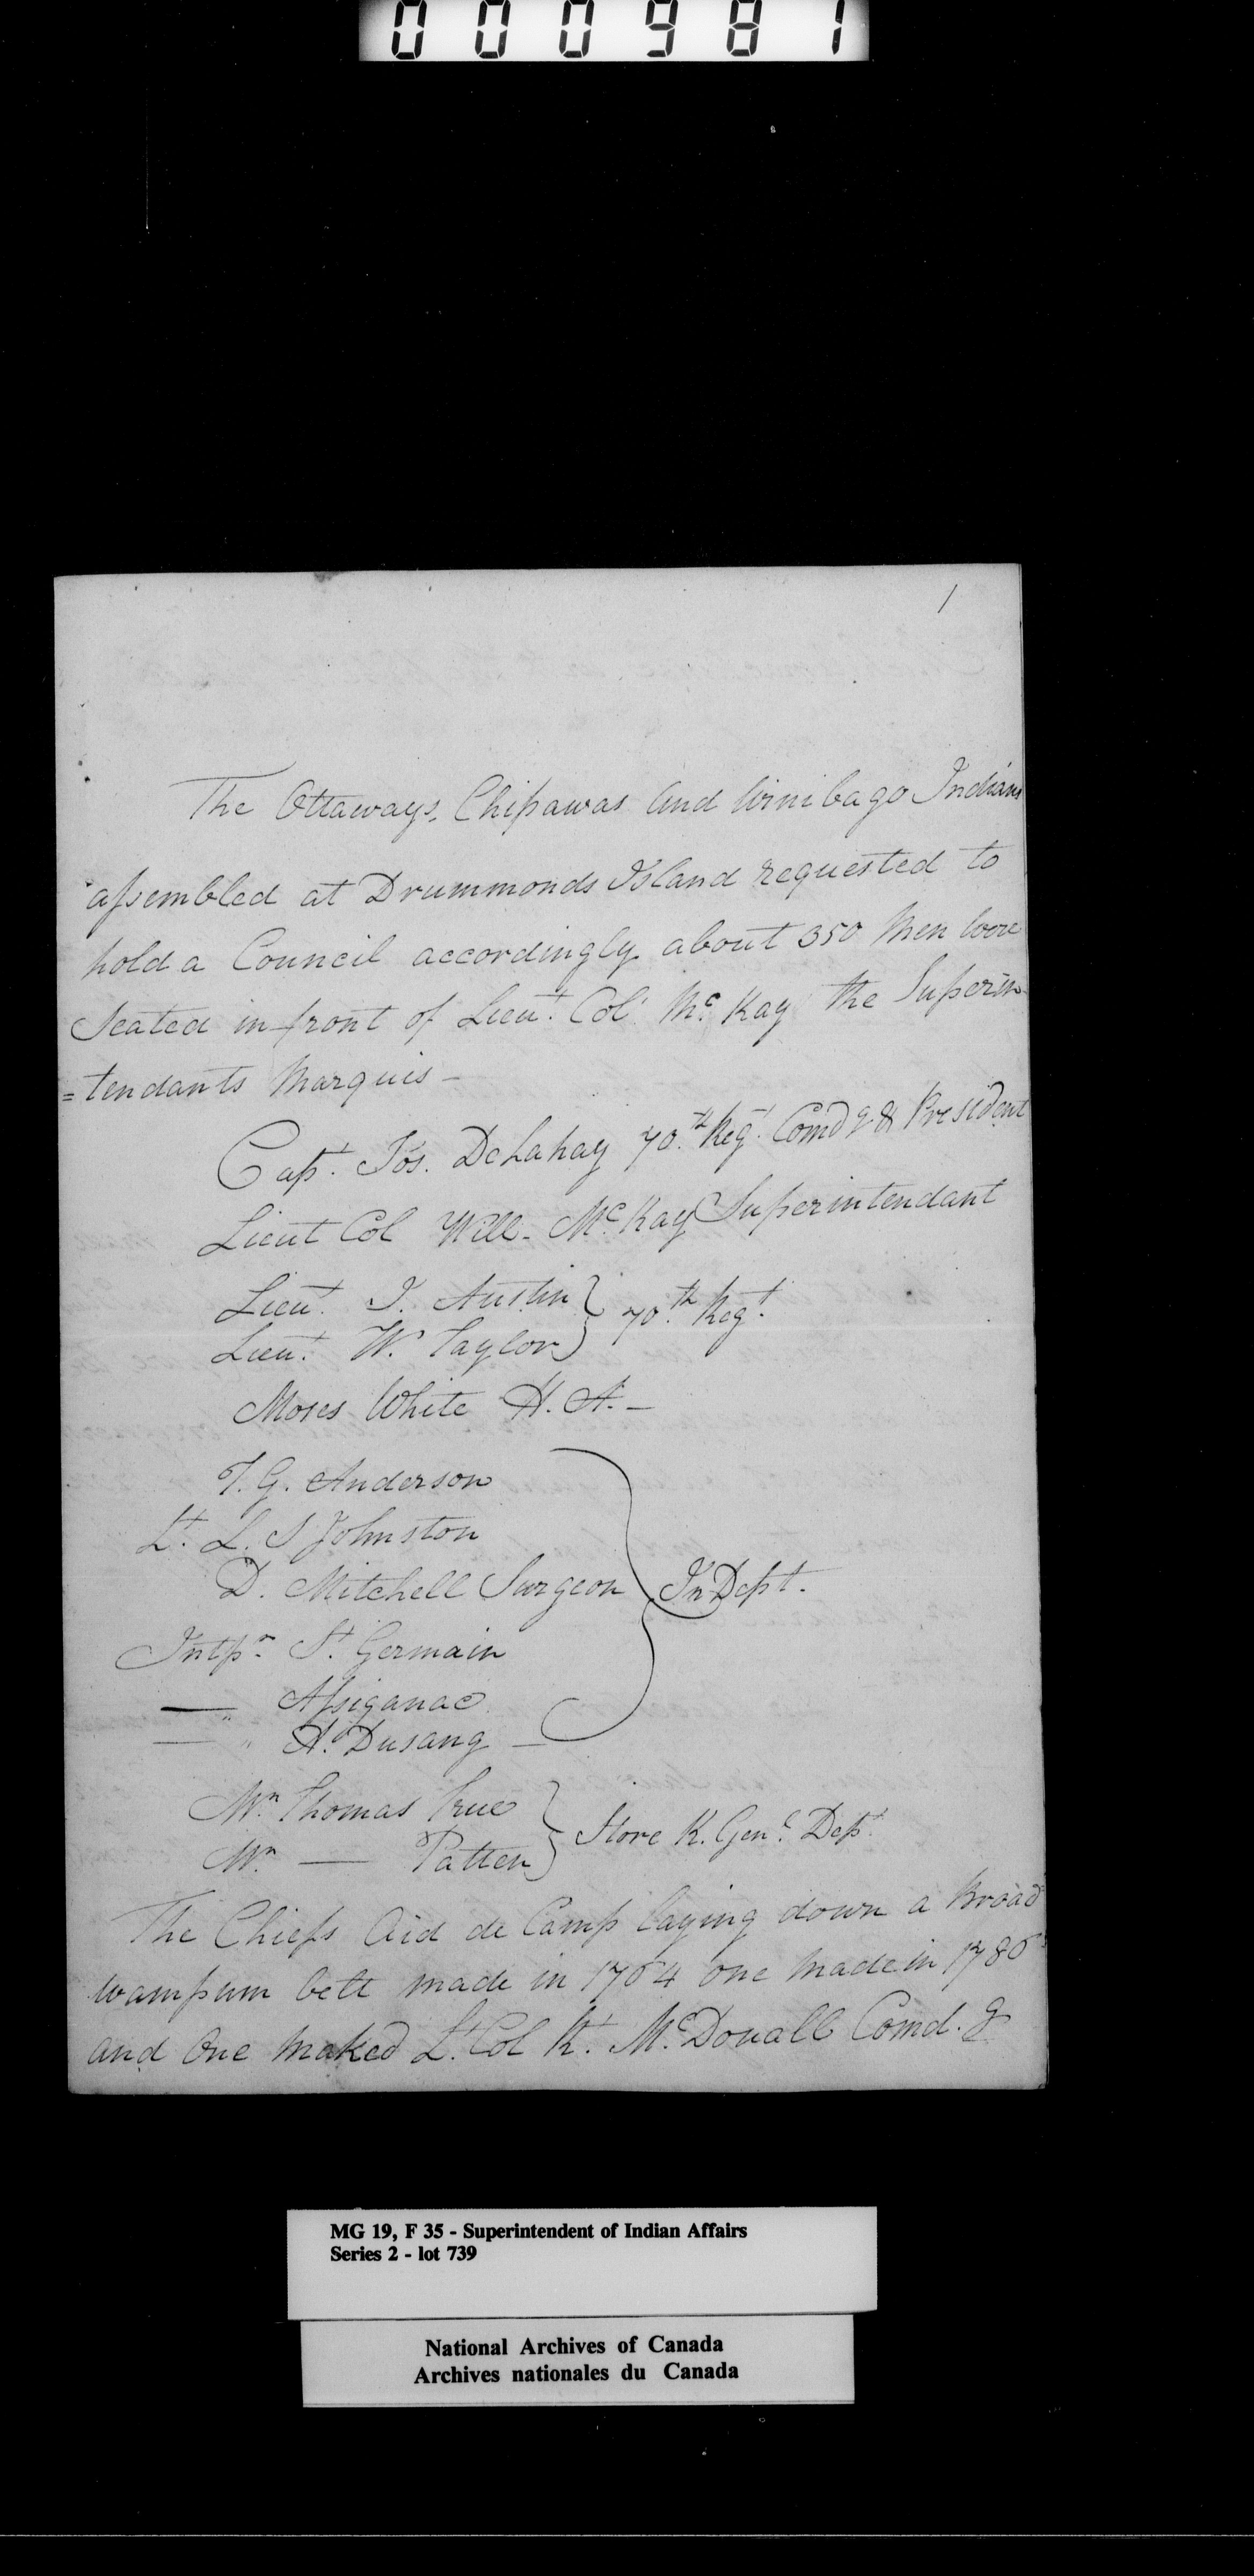 000981
1
The Ottaways, Chipawas and Winibago Indians
assembled at Drummonds Island requested to
hold a Council accordingly about 350 Men were
Seated in front of Lieut. Col. Mc.Kay the Superin
=tendants Marquis -
Capt. Jos. DeLahay 70.th Regt. Comdg & President
Lieut Col Will. Mc.Kay Superintendant
Lieut. J. Austin } 70.th Regt.
Lieut. W. Taylor
Moses White H. A. -
T. G. Anderson
Lt. L. S Johnston
D. Mitchell Surgeon } In Dept.
Intpr. St. Germain
— " Assiganac
— " Ad. Dusang -
Mr. Thomas True } Store K. Genl. Dept.
Mr. — Patten
The Chiefs Aid de Camp laying down a Broad
wampum belt made in 1764 one made in 1786
and One maked Lt. Col Rt. Mc.Douall Comd.g
MG 19, F 35 - Superintendent of Indian Affairs
Series 2 - lot 739
National Archives of Canada
Archives nationales du Canada